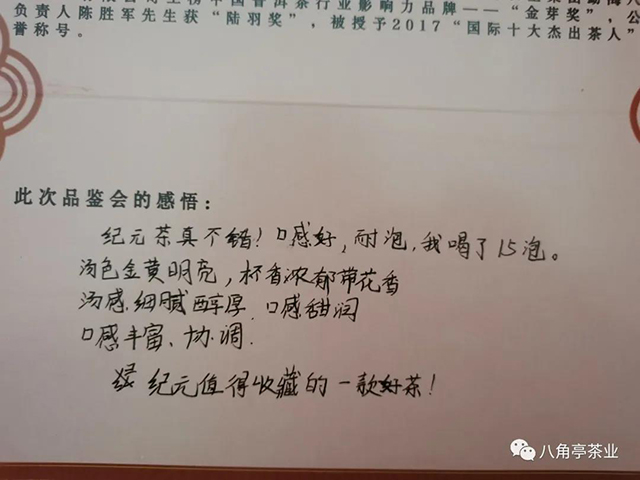 中国普洱茶行业影响力品牌——“金芽奖”，公
负责人陈胜军先生获“陆羽奖”，被授予2017“国际十大杰出茶人”
誉称号。
此次品鉴会的感悟：
纪元茶真不错！口感好，耐泡，我喝了15泡。
汤色金黄明亮，杯香浓郁带花香
汤感细腻醇厚，口感甜润
口感丰富、协调.
纪元值得收藏的一款好茶！
八角亭茶业